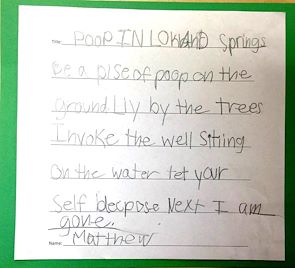 Title: Poop IN LOWAND Springs
Be a pise of poop on the
ground Lly by the trees
Invoke the well Sitting
on the water let your
Self decpose Next I am
gone.
Name: Matthew